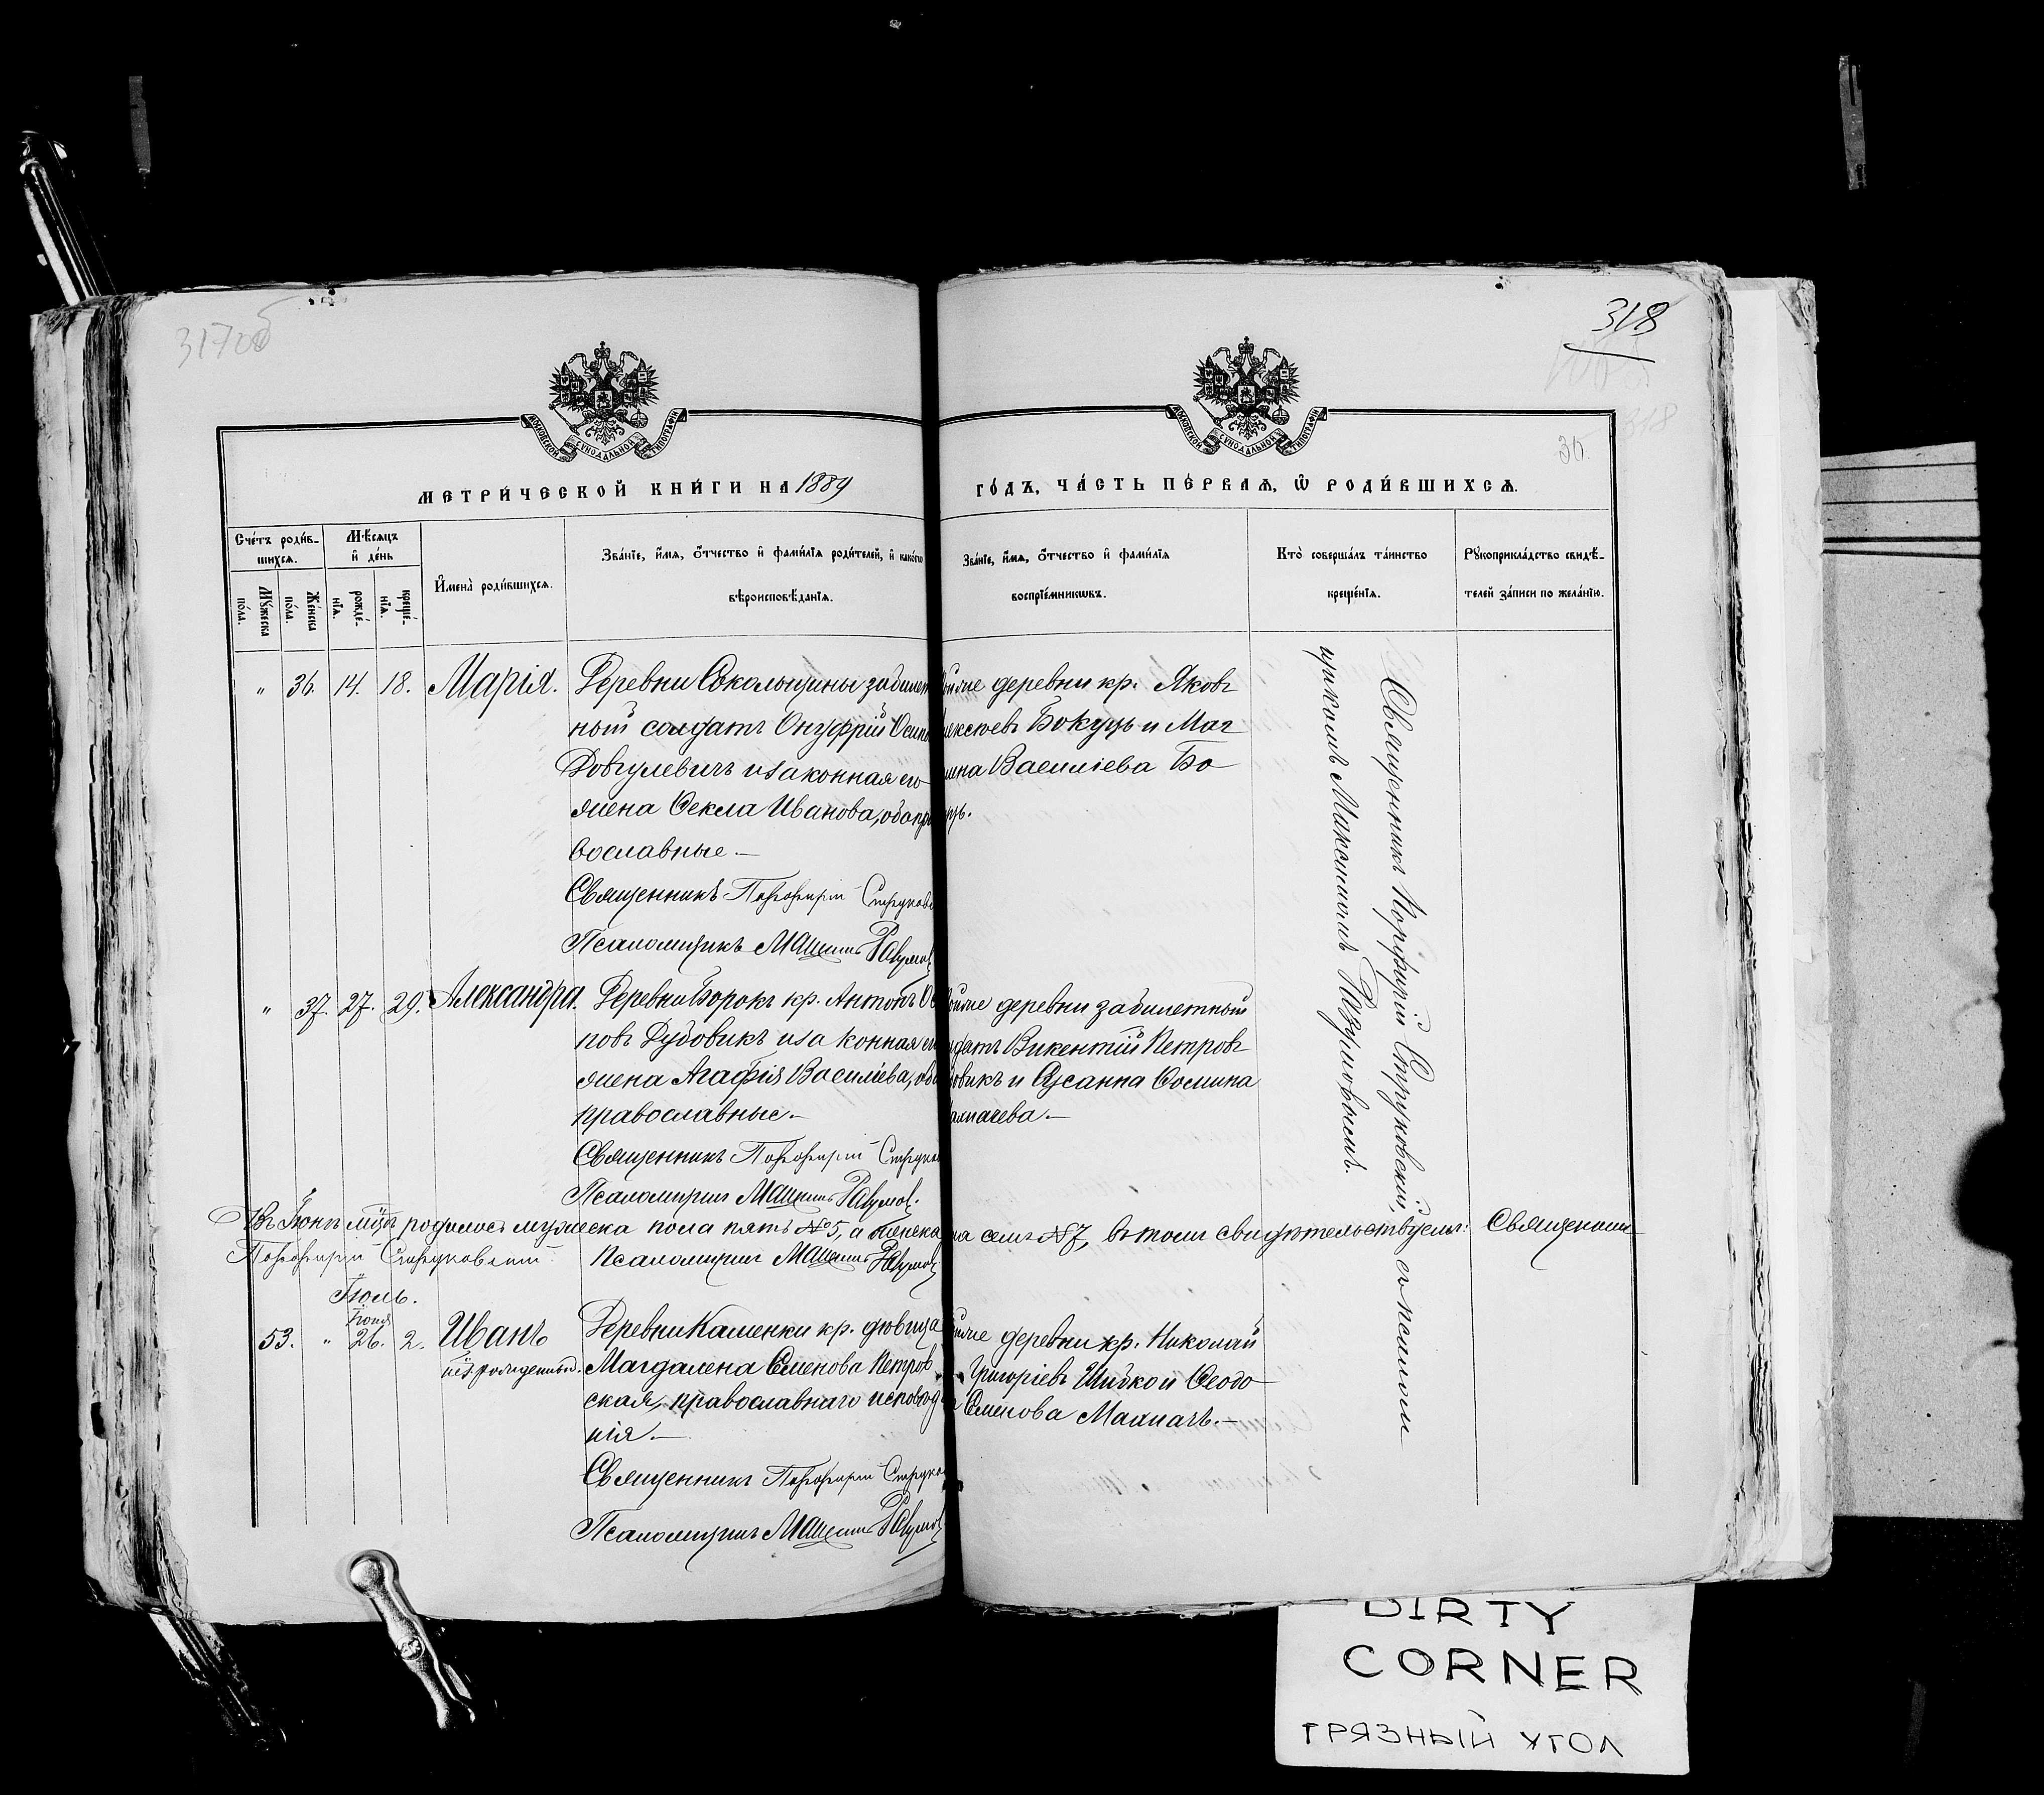 317об
318
318
30.
МОСКОВСКОЙ СУНОДАЛЬНОЙ ТИПОГРАФІИ
МОСКОВСКОЙ СУНОДАЛЬНОЙ ТИПОГРАФІИ
МЕТРИ́ЧЕСКОЙ КНИ́ГИ НА 1889
ГО́ДЪ, ЧА́СТЬ ПЕ́РВАѦ, Ѿ РОДИ́ВШИХСѦ.
Сче́тъ роди́в-
шихсѧ.
Мꙋ́жеска
по́ла.
Же́нска
по́ла.
Мѣ́сѧцъ
и҆ де́нь
рожде́-
нїѧ.
креще́-
нїѧ.
И҆мена̀ роди́вшихсѧ.
Зва́нїе, и҆́мѧ, ѻ҆́тчество и҆ фами́лїѧ роди́телей, и҆ како́гѡ
вѣроисповѣ́данїѧ.
Зва́нїе, и҆́мѧ, ѻ҆́тчество и҆ фами́лїѧ
воспрїе́мникѡвъ.
Кто̀ соверша́лъ та́инство
креще́нїѧ.
Рꙋкоприкла́дство свидѣ́-
телей за́писи по жела́нїю.
" 36. 14. 18. Марія.
Деревни Сокольщины забилет
ный солдатъ Онуфрій Осипо
Довгулевичъ и законная его
жена Ѳекла Иванова, оба пра
вославные.—
Священникъ Порфирій Струковс
Псаломщикъ Максимъ Разумов
деревни кр. Яковъ
Алексѣевъ Бокуць и Маг
Василіева Бо
куць.
" 37. 27. 29. Александра.
Деревни Борокъ кр. Антонъ Ос
повъ Дубовикъ и законная его
жена Агафія Василіева, оба
православные.—
Священникъ Порфирій Струков
Псаломщикъ Максимъ Разумов.
деревни забилетный
солдатъ Викентій Петровъ
Дубовикъ и Сусанна Ѳомина
Священникъ Порфирій Струковскій, съ псалом
щикомъ Максимомъ Разумовымъ.
Въ Іюнѣ мцѣ родилось мужеска пола пять № 5, а женска семь № 7, въ томъ свидѣтельствуемъ: Священникъ
Порфирій Струковскій Псаломщикъ Максимъ Разумов
Іюль.
53. " Іюня 26. 2. Иванъ
нез. рожденный.
Деревни Каменки кр. дѣвица
Магдалена Семенова Петров
ская, православнаго исповѣда
нія.—
Священникъ Порфирій Струко
Псаломщикъ Максимъ Разумов
деревни кр. Николай
Григоріевъ Шибко и Ѳеодо
Семенова Малначъ.—
DIRTY
CORNER
ГРЯЗНЫЙ УГОЛ